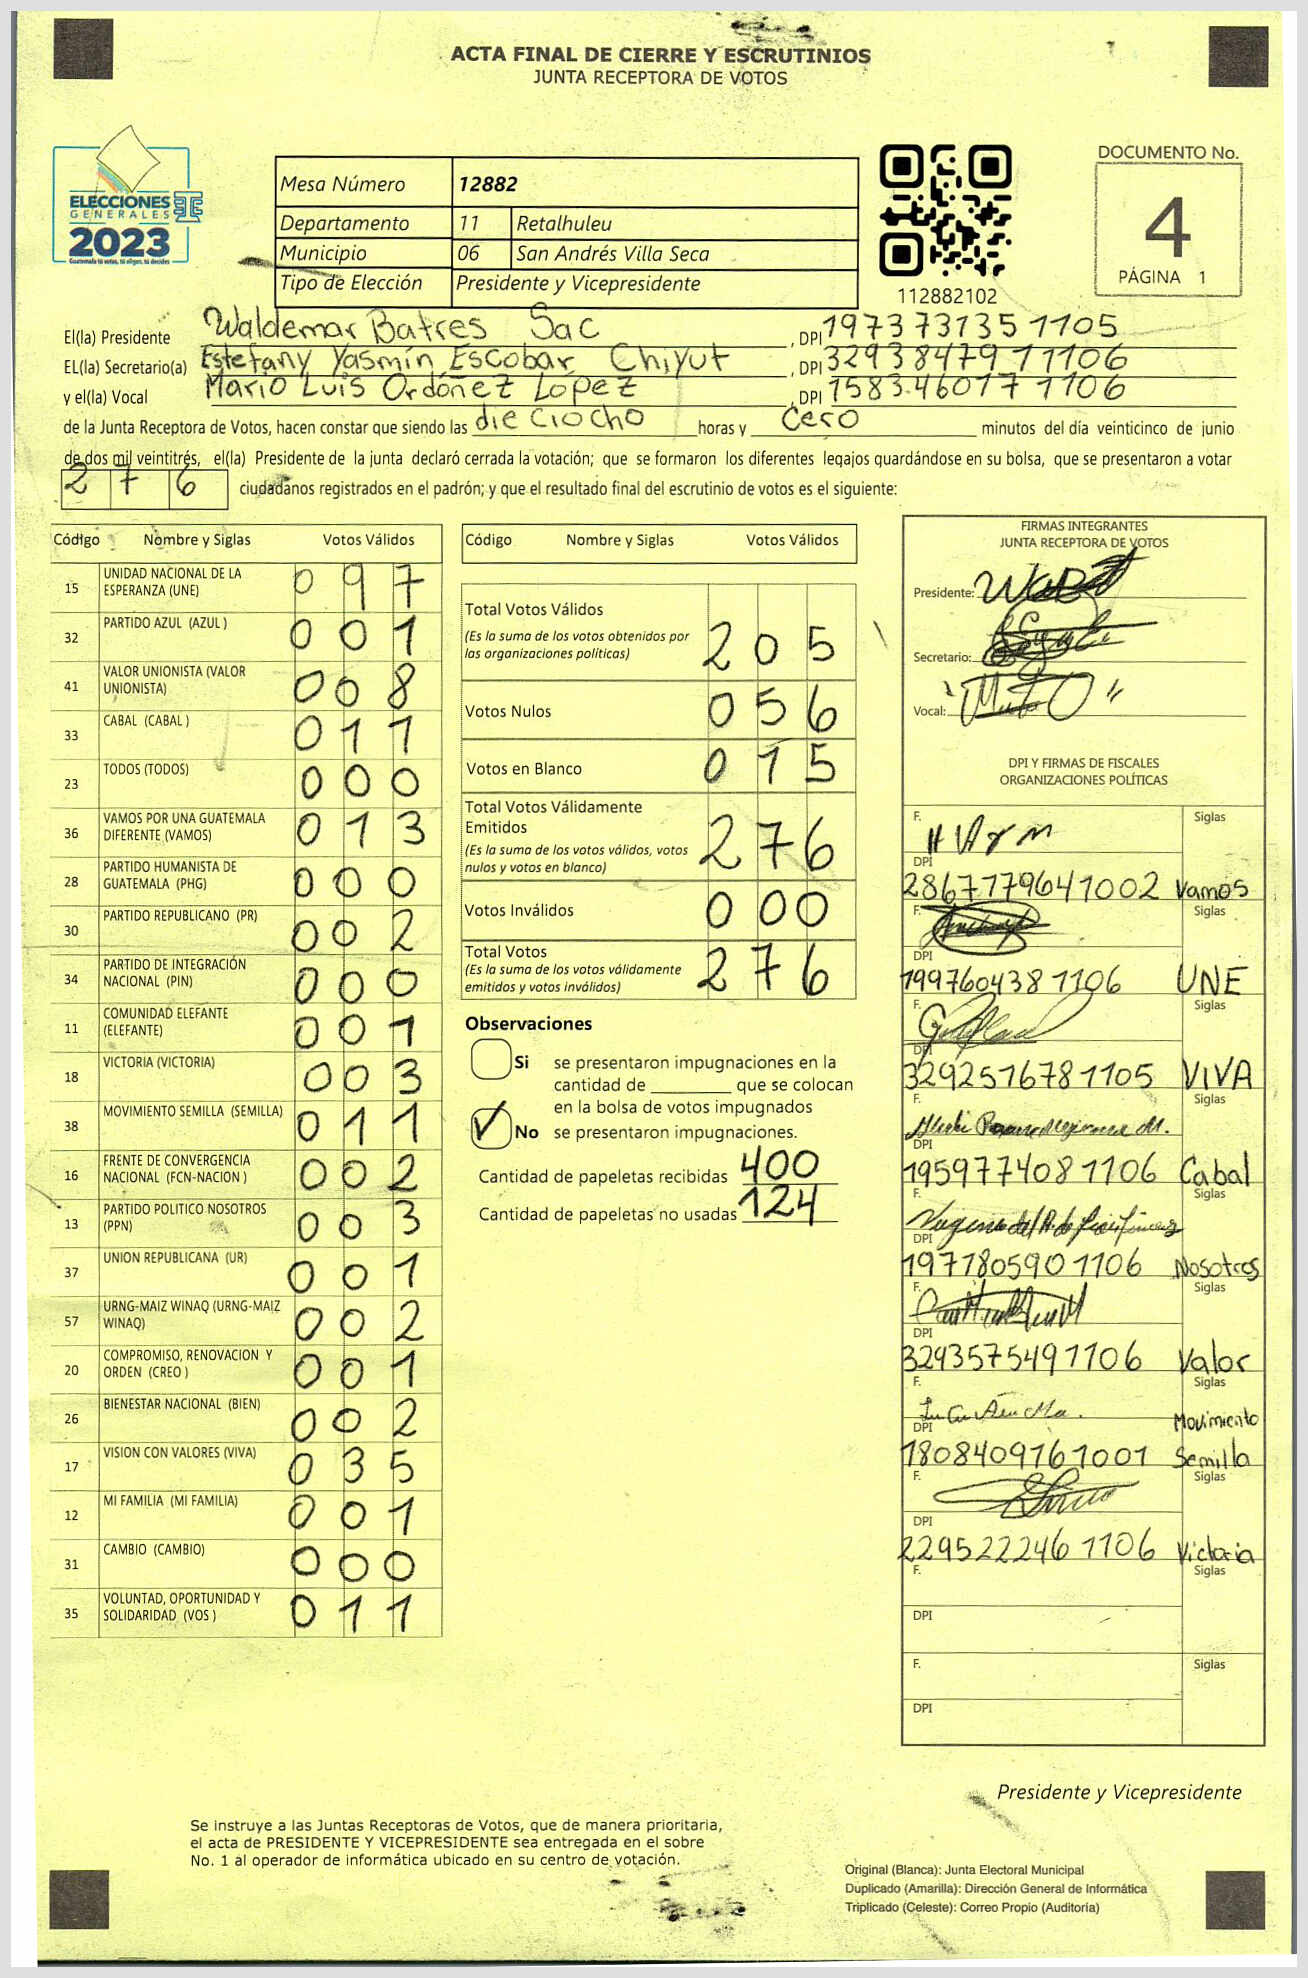 ACTA FINAL DE CIERRE Y ESCRUTINIOS
JUNTA RECEPTORA DE VOTOS
ELECCIONES
GENERALES
2023
Guatemala tú votas, tú eliges, tú decides
Mesa Número 12882
Departamento 11 Retalhuleu
Municipio 06 San Andrés Villa Seca
Tipo de Elección Presidente y Vicepresidente
112882102
DOCUMENTO No.
4
PÁGINA 1
El(la) Presidente Waldemar Batres Sac , DPI 1973731351105
EL(la) Secretario(a) Estefany Yasmín Escobar Chiyut , DPI 3293847911106
y el(la) Vocal Mario Luis Ordoñez Lopez , DPI 1583460171106
de la Junta Receptora de Votos, hacen constar que siendo las die ciocho horas y cero minutos del día veinticinco de junio
de dos mil veintitrés, el(la) Presidente de la junta declaró cerrada la votación; que se formaron los diferentes legajos guardándose en su bolsa, que se presentaron a votar
276 ciudadanos registrados en el padrón; y que el resultado final del escrutinio de votos es el siguiente:
Código Nombre y Siglas Votos Válidos
15 UNIDAD NACIONAL DE LA ESPERANZA (UNE) 097
32 PARTIDO AZUL (AZUL ) 001
41 VALOR UNIONISTA (VALOR UNIONISTA) 008
33 CABAL (CABAL ) 011
23 TODOS (TODOS) 000
36 VAMOS POR UNA GUATEMALA DIFERENTE (VAMOS) 013
28 PARTIDO HUMANISTA DE GUATEMALA (PHG) 000
30 PARTIDO REPUBLICANO (PR) 002
34 PARTIDO DE INTEGRACIÓN NACIONAL (PIN) 000
11 COMUNIDAD ELEFANTE (ELEFANTE) 001
18 VICTORIA (VICTORIA) 003
38 MOVIMIENTO SEMILLA (SEMILLA) 011
16 FRENTE DE CONVERGENCIA NACIONAL (FCN-NACION ) 002
13 PARTIDO POLITICO NOSOTROS (PPN) 003
37 UNION REPUBLICANA (UR) 001
57 URNG-MAIZ WINAQ (URNG-MAIZ WINAQ) 002
20 COMPROMISO, RENOVACION Y ORDEN (CREO ) 001
26 BIENESTAR NACIONAL (BIEN) 002
17 VISION CON VALORES (VIVA) 035
12 MI FAMILIA (MI FAMILIA) 001
31 CAMBIO (CAMBIO) 000
35 VOLUNTAD, OPORTUNIDAD Y SOLIDARIDAD (VOS ) 011
Código Nombre y Siglas Votos Válidos
Total Votos Válidos 205
(Es la suma de los votos obtenidos por
las organizaciones políticas)
Votos Nulos 056
Votos en Blanco 015
Total Votos Válidamente
Emitidos 276
(Es la suma de los votos válidos, votos
nulos y votos en blanco)
Votos Inválidos 000
Total Votos 276
(Es la suma de los votos válidamente
emitidos y votos inválidos)
Observaciones
Si se presentaron impugnaciones en la
cantidad de ________ que se colocan
en la bolsa de votos impugnados
No se presentaron impugnaciones.
Cantidad de papeletas recibidas 400
Cantidad de papeletas no usadas 124
FIRMAS INTEGRANTES
JUNTA RECEPTORA DE VOTOS
Presidente:
Secretario:
Vocal:
DPI Y FIRMAS DE FISCALES
ORGANIZACIONES POLÍTICAS
F. Siglas
DPI
2867779641002 Vamos
F. Siglas
DPI
1997604381106 UNE
F. Siglas
DPI
3292516781105 VIVA
F. Siglas
DPI
1959774081106 Cabal
F. Siglas
DPI
1971805901106 Nosotros
F. Siglas
DPI
3243575491106 Valor
F. Siglas
DPI Movimiento
1808409161001 Semilla
F. Siglas
DPI
2295222461106 Victoria
F. Siglas
DPI
F. Siglas
DPI
Presidente y Vicepresidente
Se instruye a las Juntas Receptoras de Votos, que de manera prioritaria,
el acta de PRESIDENTE Y VICEPRESIDENTE sea entregada en el sobre
No. 1 al operador de informática ubicado en su centro de votación.
Original (Blanca): Junta Electoral Municipal
Duplicado (Amarilla): Dirección General de Informática
Triplicado (Celeste): Correo Propio (Auditoría)